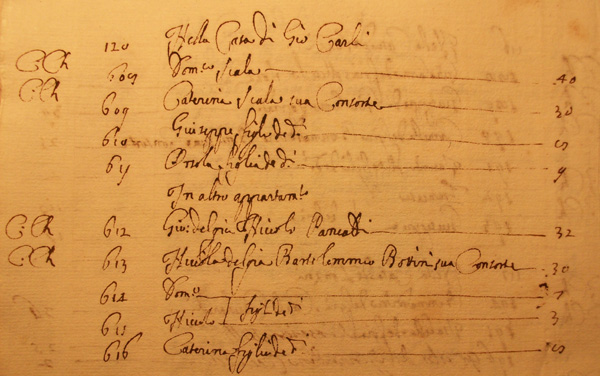 120 Nella Casa di Gio Carli
C. Ch 608 Dom.co Scala 40
C. Ch 609 Caterina Scala sua Consorte 30
610 Giuseppe figli de d.i
611 Orsola figlia de d.i 9
In altro appartam.to
C. Ch 612 Gio: del q Nicolo Pancatti 32
C. Ch 613 Nicola del q Bartolommeo sua Consorte 30
614 Dom.co 7
615 Nicolo figli de d.i 3
616 Caterina figlia de d.i